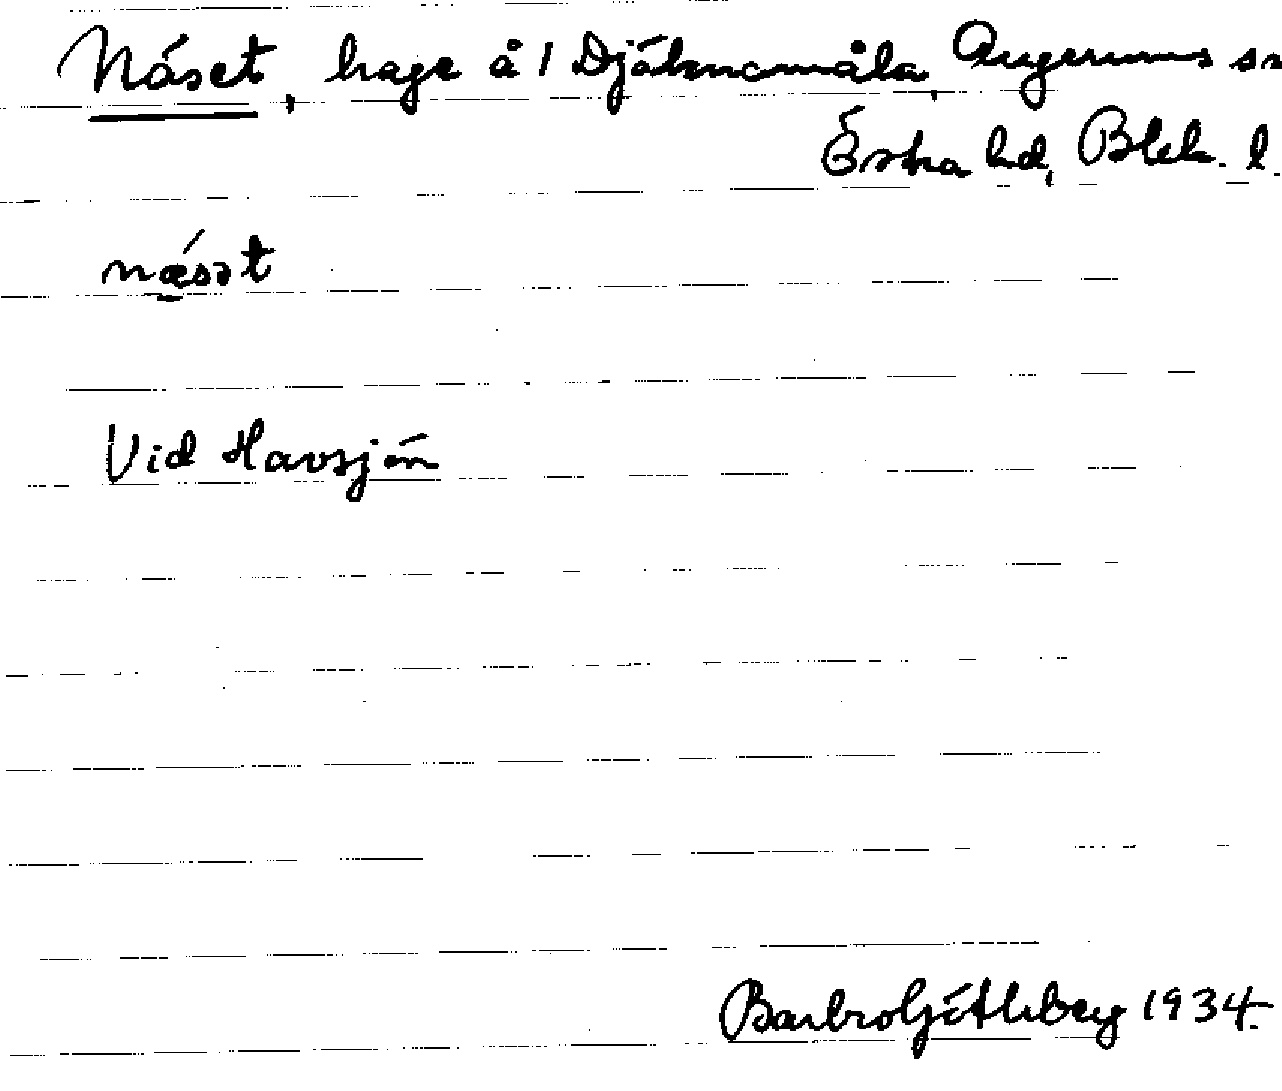 Näset, hage å 1 Djäknamåla, Augerums sn
Östra hd, Blek. l.
næsət
Vid Havsjön
Barbro Götlibey 1934.